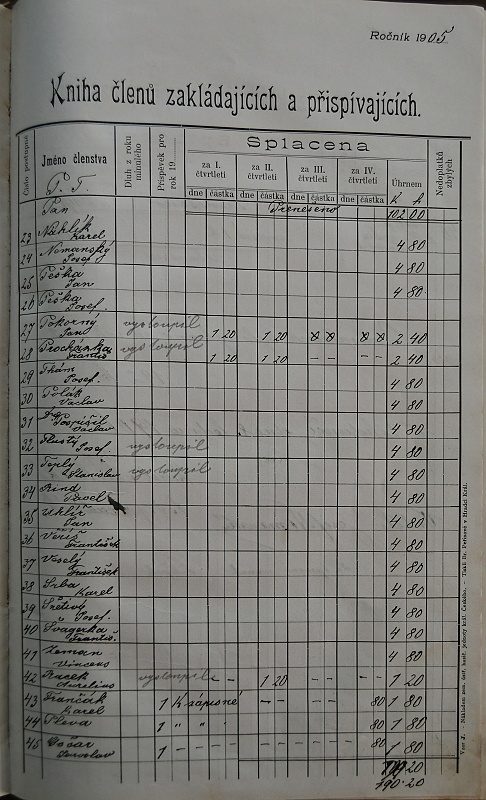 Ročník 1905.
Kniha členů zakládajících a přispívajících.
Číslo postupné
Jméno členstva
P. T.
Dluh z roku minulého
Příspěvek pro rok 19
Splacena
za I. čtvrtletí za II. čtvrtletí za III. čtvrtletí za IV. čtvrtletí Úhrnem
Nedoplatků zbylých
dne částka dne částka dne částka dne částka K h
Pan Přeneseno 102 00
23 Náhlík Karel 4 80
24 Nemanský Josef 4 80
25 Peška Jan 4 80
26 Peška Josef
27 Pokorný Jan vystoupil 1 20 1 20 2 40
28 Procházka Frant. vystoupil 1 20 1 20 – – – – 2 40
29 Josef 4 80
30 Polák Václav 4 80
31 Pospíšil Václav 4 80
32 Josef. vystoupil 4 80
33 Teplý Stanislav vystoupil 4 80
34 Pavel 4 80
35 Uklíř Jan 4 80
36 František 4 80
37 Veselý František 4 80
38 Srba Karel 4 80
39 Josef. 4 80
40 Švagerka Frant. 4 80
41 Zeman Vincenc 4 80
42 Racek vystoupil – – 1 20 – – – – 1 20
43 Karel 1 K zápisné 80 1 80
44 Pleva 1 " " " 80 1 80
45 Gočár Jaroslav 1 – – – – – – – 80 1 80
20
190·20
Vzor J. – Nákladem zem. úst. hasič. jednoty král. Českého. – Tiskl Dr. Petrese v Hradci Král.